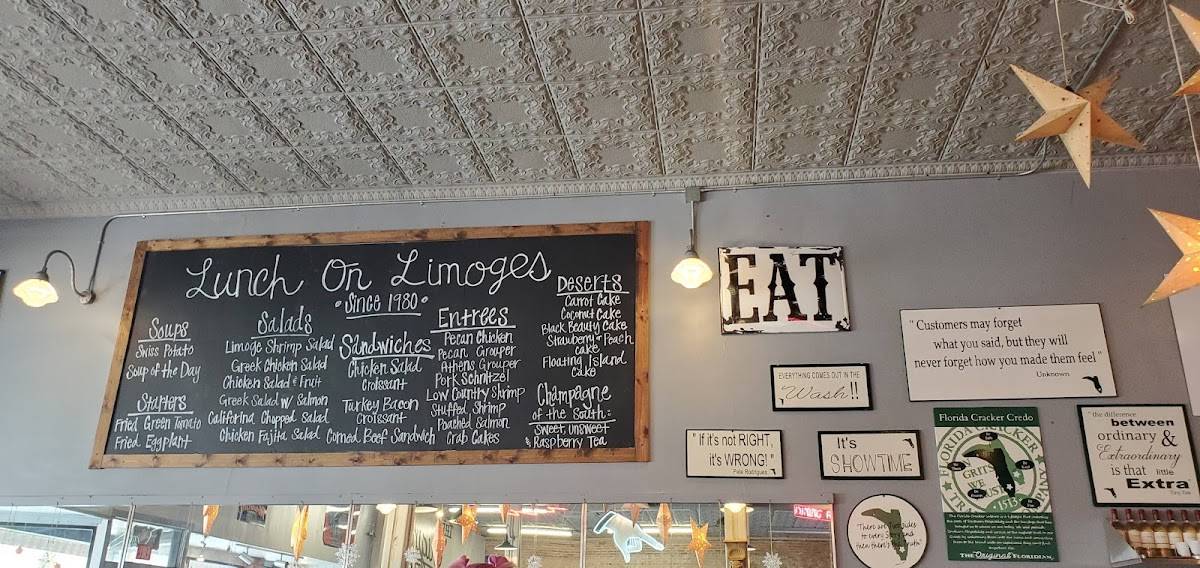 Lunch On Limoges
"Since 1980"
Soups
Swiss Potato
Soup of the Day
Starters
Fried Green Tomato
Fried Eggplant
Salads
Limoge Shrimp Salad
Greek Chicken Salad
Chicken Salad & Fruit
Greek Salad w/ Salmon
California Chopped Salad
Chicken Fajita Salad
Sandwiches
Chicken Salad
Croissant
Turkey Bacon
Croissant
Corned Beef Sandwich
Entrees
Pecan Chicken
Pecan Grouper
Athens Grouper
Pork Schnitzel
Low Country Shrimp
Stuffed Shrimp
Poached Salmon
Crab Cakes
Deserts
Carrot Cake
Coconut Cake
Black Beauty Cake
Strawberry or Peach
Cake
Floating Island
Cake
Champagne
of the South:
Sweet, unsweet
& Raspberry Tea
EAT
EVERYTHING COMES OUT IN THE
Wash!!
"If it's not RIGHT,
it's WRONG!"
It's
SHOWTIME
"Customers may forget
what you said, but they will
never forget how you made them feel"
Unknown
Florida Cracker Credo
GRITS
WE
TRUST
The Original Floridian
"the difference
between
ordinary &
Extraordinary
is that little
Extra